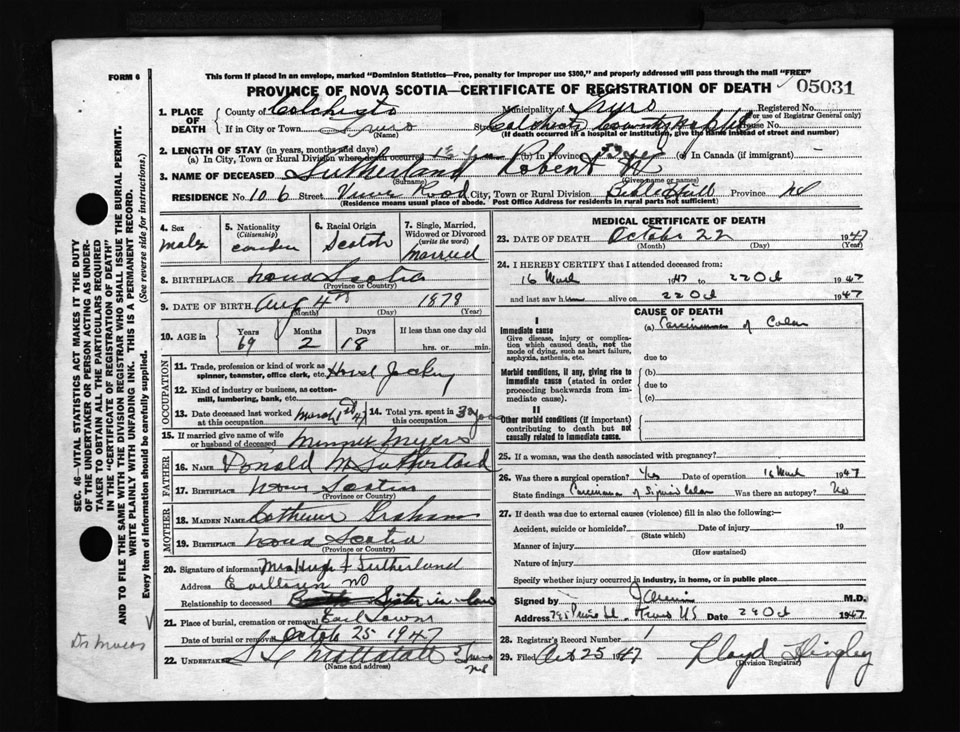 FORM 6
This form if placed in an envelope, marked "Dominion Statistics—Free, penalty for improper use $300," and properly addressed will pass through the mail "FREE"
PROVINCE OF NOVA SCOTIA—CERTIFICATE OF REGISTRATION OF DEATH 05031
1. PLACE OF DEATH County of Municipality of Truro Registered No.
(For use of Registrar General only)
If in City or Town Truro Street Colchester County House No.
(Name) (If death occurred in a hospital or institution, give the name instead of street and number)
2. LENGTH OF STAY (in years, months and days)
(a) In City, Town or Rural Division where death occurred (b) In Province (c) In Canada (if immigrant)
3. NAME OF DECEASED Sutherland Robert
(Surname) (Given name or names)
RESIDENCE No. 106 Street Road City, Town or Rural Division Bible Hill Province NS
(Residence means usual place of abode. Post Office Address for residents in rural parts not sufficient)
4. Sex male
5. Nationality (Citizenship)
6. Racial Origin Scotch
7. Single, Married, Widowed or Divorced (write the word) Married
8. BIRTHPLACE Nova Scotia
(Province or Country)
9. DATE OF BIRTH Aug 4th 1878
(Month) (Day) (Year)
10. AGE in Years 69 Months 2 Days 18 If less than one day old hrs. or min.
OCCUPATION
11. Trade, profession or kind of work as spinner, teamster, office clerk, etc. Jockey
12. Kind of industry or business, as cotton-mill, lumbering, bank, etc.
13. Date deceased last worked at this occupation March 47
14. Total yrs. spent in this occupation
15. If married give name of wife or husband of deceased Myers
FATHER
16. NAME Donald M Sutherland
17. BIRTHPLACE Nova Scotia
(Province or Country)
MOTHER
18. MAIDEN NAME Graham
19. BIRTHPLACE Nova Scotia
(Province or Country)
20. Signature of informant Mrs Hugh Sutherland
Address
Relationship to deceased Sister in law
21. Place of burial, cremation or removal Earltown
Date of burial or removal October 25 1947
22. UNDERTAKER Mattatall Truro NS
(Name and address)
MEDICAL CERTIFICATE OF DEATH
23. DATE OF DEATH October 22 1947
(Month) (Day) (Year)
24. I HEREBY CERTIFY that I attended deceased from:
16 March 1947 to 22 Oct 1947
and last saw him alive on 22 Oct 1947
CAUSE OF DEATH
I
Immediate cause
Give disease, injury or complication which caused death, not the mode of dying, such as heart failure, asphyxia, asthenia, etc.
(a) Carcinoma of Colon
due to
Morbid conditions, if any, giving rise to immediate cause (stated in order proceeding backwards from immediate cause).
(b)
due to
(c)
II
Other morbid conditions (if important) contributing to death but not causally related to immediate cause.
25. If a woman, was the death associated with pregnancy?
26. Was there a surgical operation? Yes Date of operation 16 March 1947
State findings Carcinoma of Sigmoid Colon Was there an autopsy? No
27. If death was due to external causes (violence) fill in also the following:—
Accident, suicide or homicide? Date of injury 19
(State which)
Manner of injury
(How sustained)
Nature of injury
Specify whether injury occurred in industry, in home, or in public place
Signed by M.D.
Address Truro NS Date 1947
28. Registrar's Record Number
29. Filed Oct 25 1947 Lloyd
(Division Registrar)
SEC. 46—VITAL STATISTICS ACT MAKES IT THE DUTY
OF THE UNDERTAKER OR PERSON ACTING AS UNDER-
TAKER TO OBTAIN ALL THE PARTICULARS REQUIRED
IN THE "CERTIFICATE OF REGISTRATION OF DEATH"
AND TO FILE THE SAME WITH THE DIVISION REGISTRAR WHO SHALL ISSUE THE BURIAL PERMIT.
WRITE PLAINLY WITH UNFADING INK. THIS IS A PERMANENT RECORD.
Every item of information should be carefully supplied. (See reverse side for instructions.)